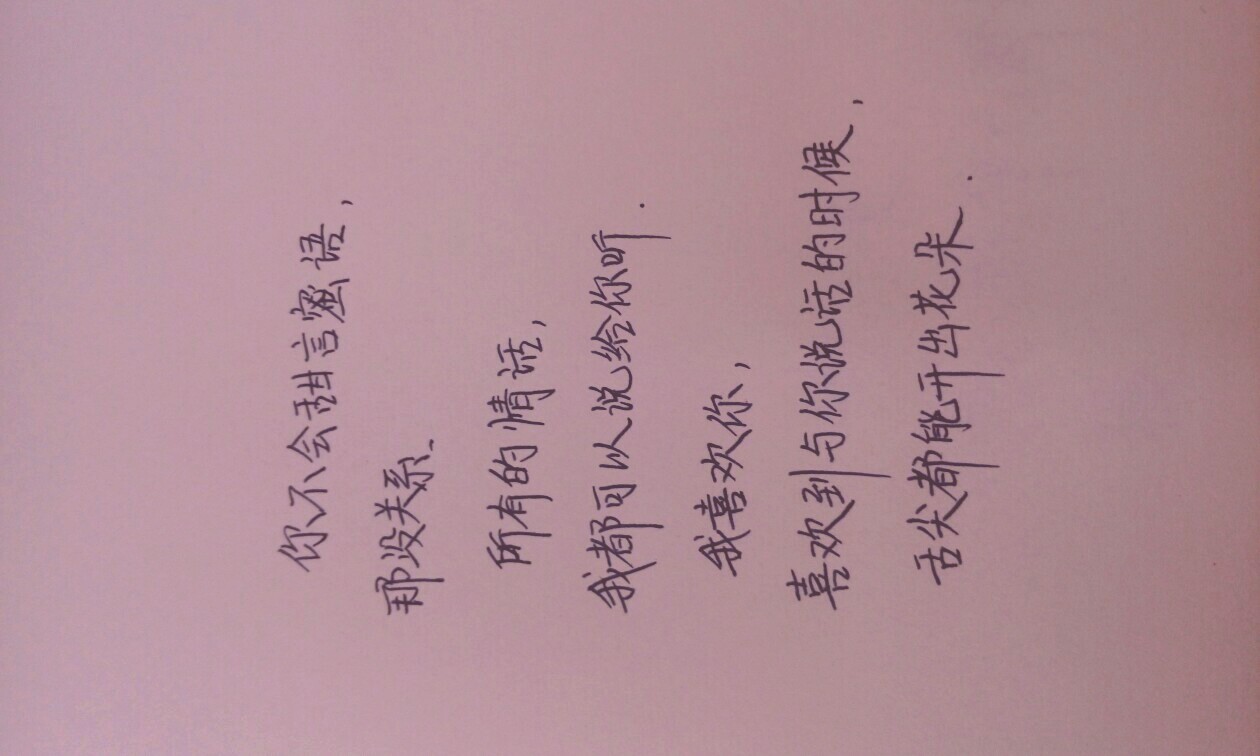 你不会甜言蜜语，
那没关系.
所有的情话，
我都可以说给你听.
我喜欢你，
喜欢到与你说话的时候，
舌尖都能开出花朵.